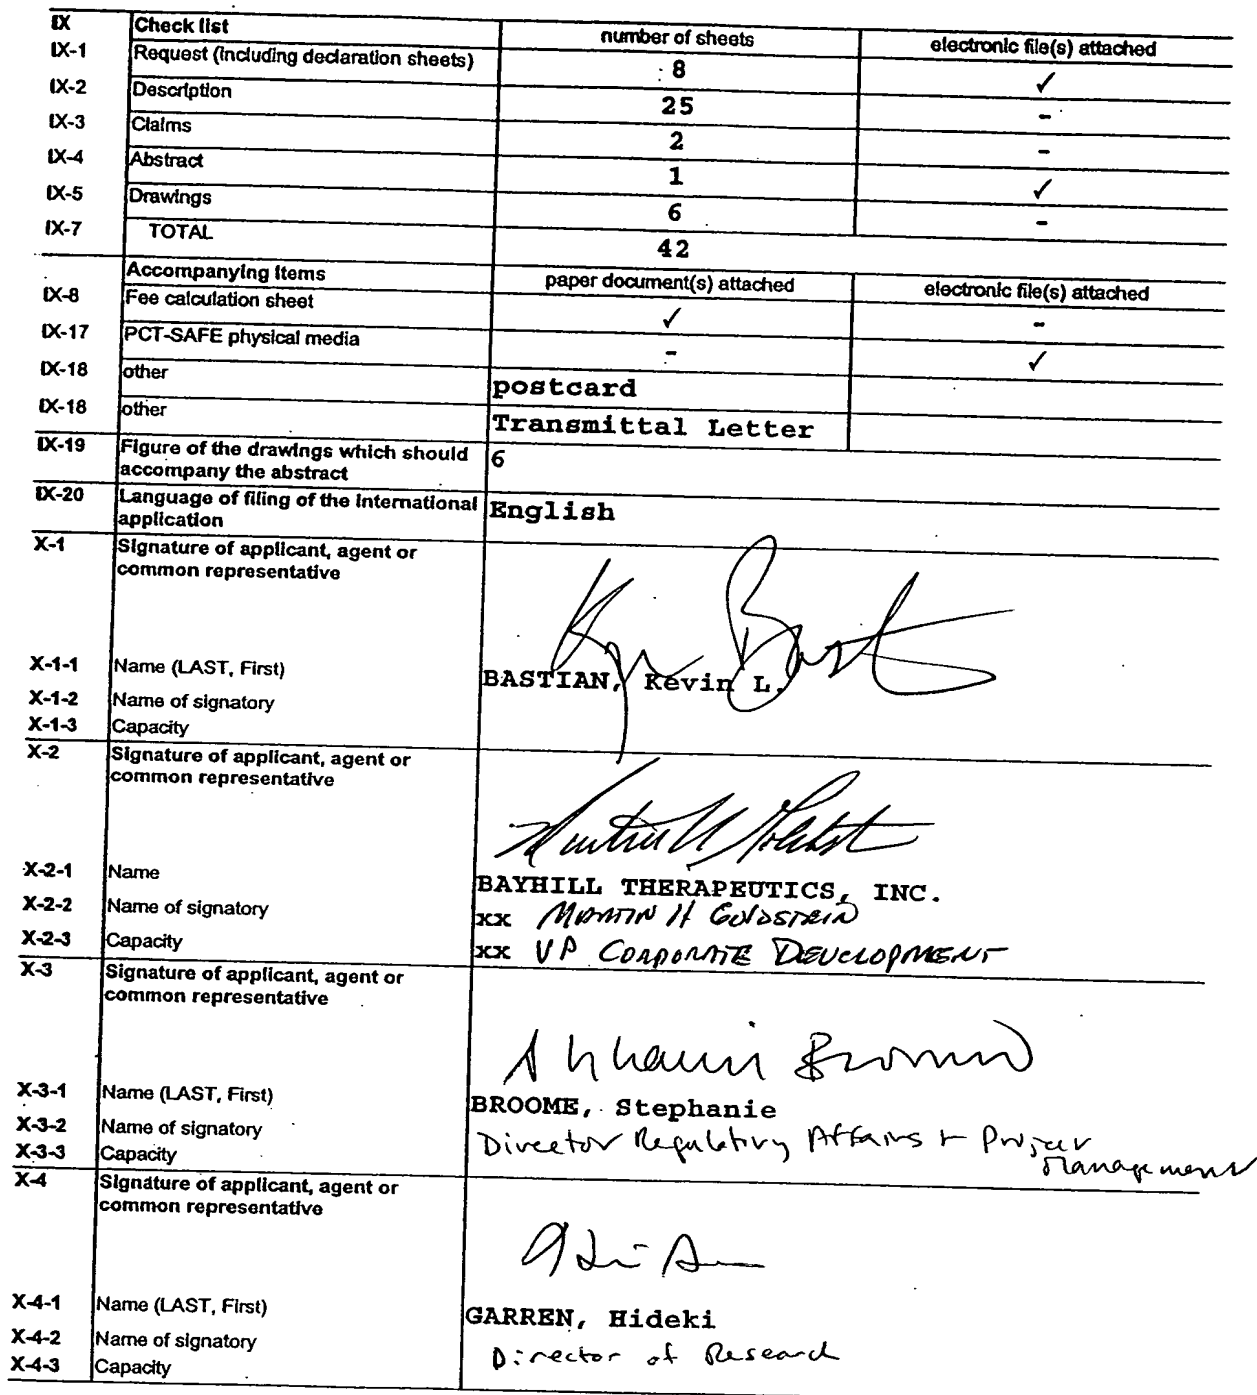 IX Check list number of sheets electronic file(s) attached
IX-1 Request (including declaration sheets) 8 ✓
IX-2 Description 25 -
IX-3 Claims 2 -
IX-4 Abstract 1 ✓
IX-5 Drawings 6 -
IX-7 TOTAL 42
Accompanying Items paper document(s) attached electronic file(s) attached
IX-8 Fee calculation sheet ✓ -
IX-17 PCT-SAFE physical media - ✓
IX-18 other postcard
IX-18 other Transmittal Letter
IX-19 Figure of the drawings which should 6
accompany the abstract
IX-20 Language of filing of the international English
application
X-1 Signature of applicant, agent or
common representative
X-1-1 Name (LAST, First) BASTIAN, Kevin L.
X-1-2 Name of signatory
X-1-3 Capacity
X-2 Signature of applicant, agent or
common representative
X-2-1 Name BAYHILL THERAPEUTICS, INC.
X-2-2 Name of signatory xx MARTIN H GOLDSTEIN
X-2-3 Capacity xx VP CORPORATE DEVELOPMENT
X-3 Signature of applicant, agent or
common representative
X-3-1 Name (LAST, First) BROOME, Stephanie
X-3-2 Name of signatory Director Regulatory Affairs + Project
Management
X-3-3 Capacity
X-4 Signature of applicant, agent or
common representative
X-4-1 Name (LAST, First) GARREN, Hideki
X-4-2 Name of signatory Director of Research
X-4-3 Capacity